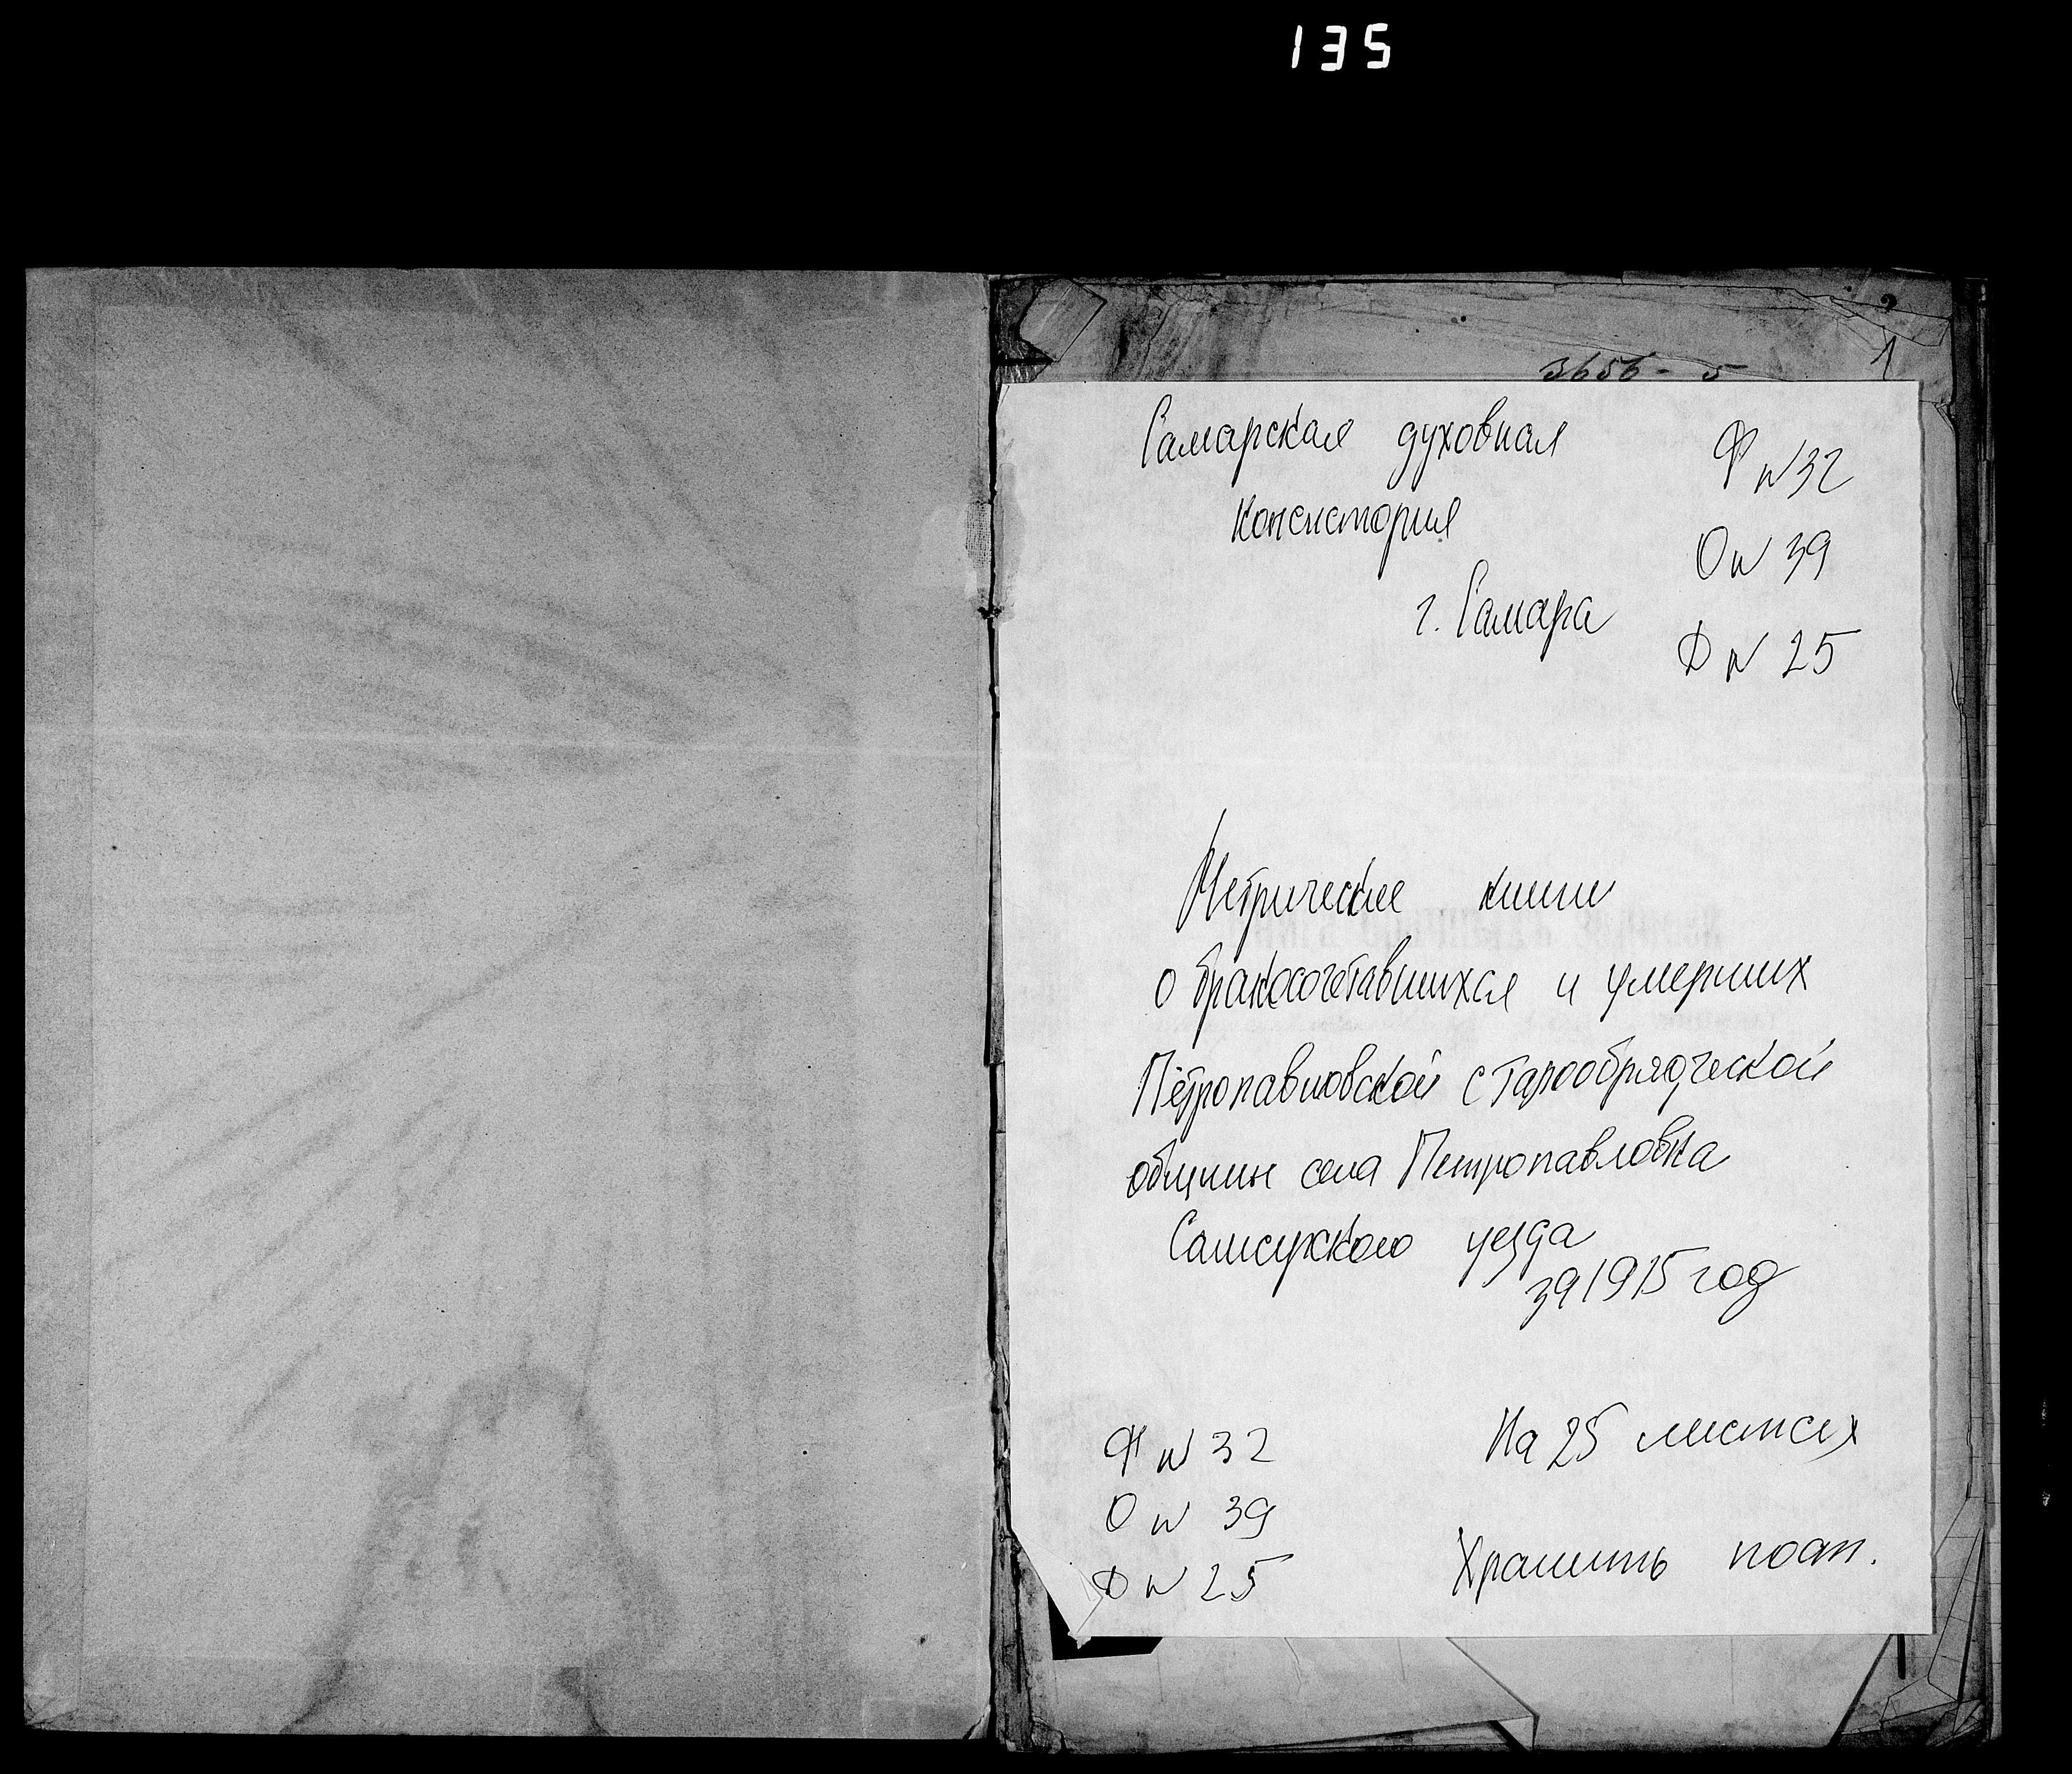 135
1
3656 - 5
Самарская духовная
Ф № 32
консистория
О № 39
г. Самара
Д № 25
Метрические книги
о бракосочетавшихся и умерших
Петропавловской старообрядческой
общины села Петропавловка
Самарского уезда
за 1915 год
Ф № 32
На 25 листах
О № 39
Д № 25
Хранить пост.